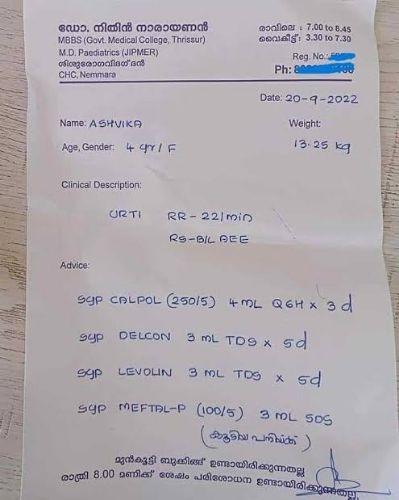 ഡോ. നിതിൻ നാരായണൻ
MBBS (Govt. Medical College, Thrissur)
M.D. Paediatrics (JIPMER)
ശിശുരോഗവിദഗ്ദൻ
CHC, Nemmara
രാവിലെ : 7.00 to 8.45
വൈകീട്ട്: 3.30 to 7.30
Reg. No.:
Ph:
Date: 20-9-2022
Name: ASHVIKA
Weight:
Age, Gender: 4 yr/F
13.25 kg
Clinical Description:
URTI RR-22/min
RS-B/L AEE
Advice:
syp CALPOL (250/5) 4 ML Q6H x 3d
syp DELCON 3 ML TDS x 5d
syp LEVOLIN 3 ML TDS x 5d
syp MEFTAL-P (100/5) 3 ML SOS
(കൂടിയ പനിയ്ക്ക്)
മുൻകൂട്ടി ബുക്കിങ്ങ് ഉണ്ടായിരിക്കുന്നതല്ല
രാത്രി 8.00 മണിക്ക് ശേഷം പരിശോധന ഉണ്ടായിരിക്കുന്നതല്ല.